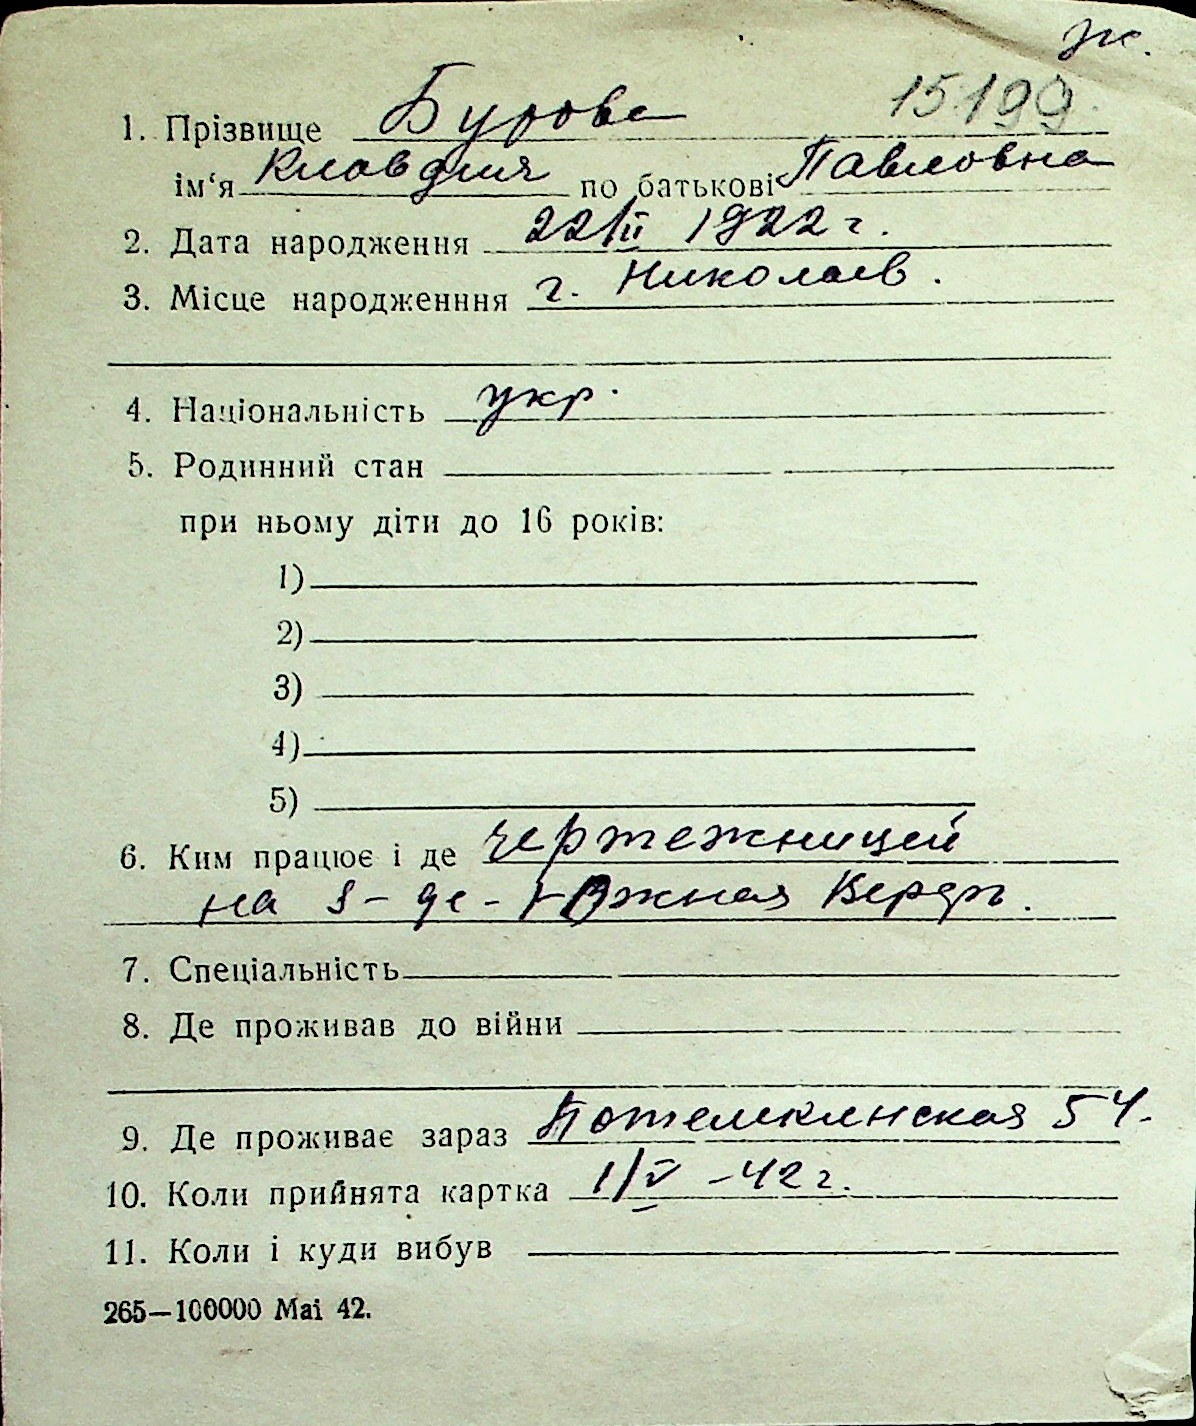 ж.
15199
1. Прізвище Бурова
ім‘я Клавдия по батькові Павловна
2. Дата народження 22/II 1922 г.
3. Місце народженння г. Николаев.
4. Національність укр.
5. Родинний стан
при ньому діти до 16 років:
1)
2)
3)
4)
5)
6. Ким працює і де чертежницей
на з-де Южная Верфь.
7. Спеціальність
8. Де проживав до війни
9. Де проживає зараз Потемкинская 54.
10. Коли прийнята картка 1/V -42 г.
11. Коли і куди вибув
265—100000 Mai 42.